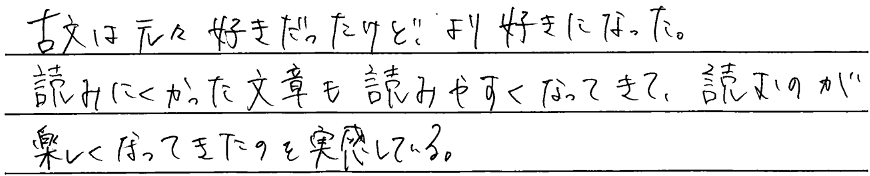 古文は元々好きだったけど、より好きになった。
読みにくかった文章も読みやすくなってきて、読むのが
楽しくなってきたのを実感している。